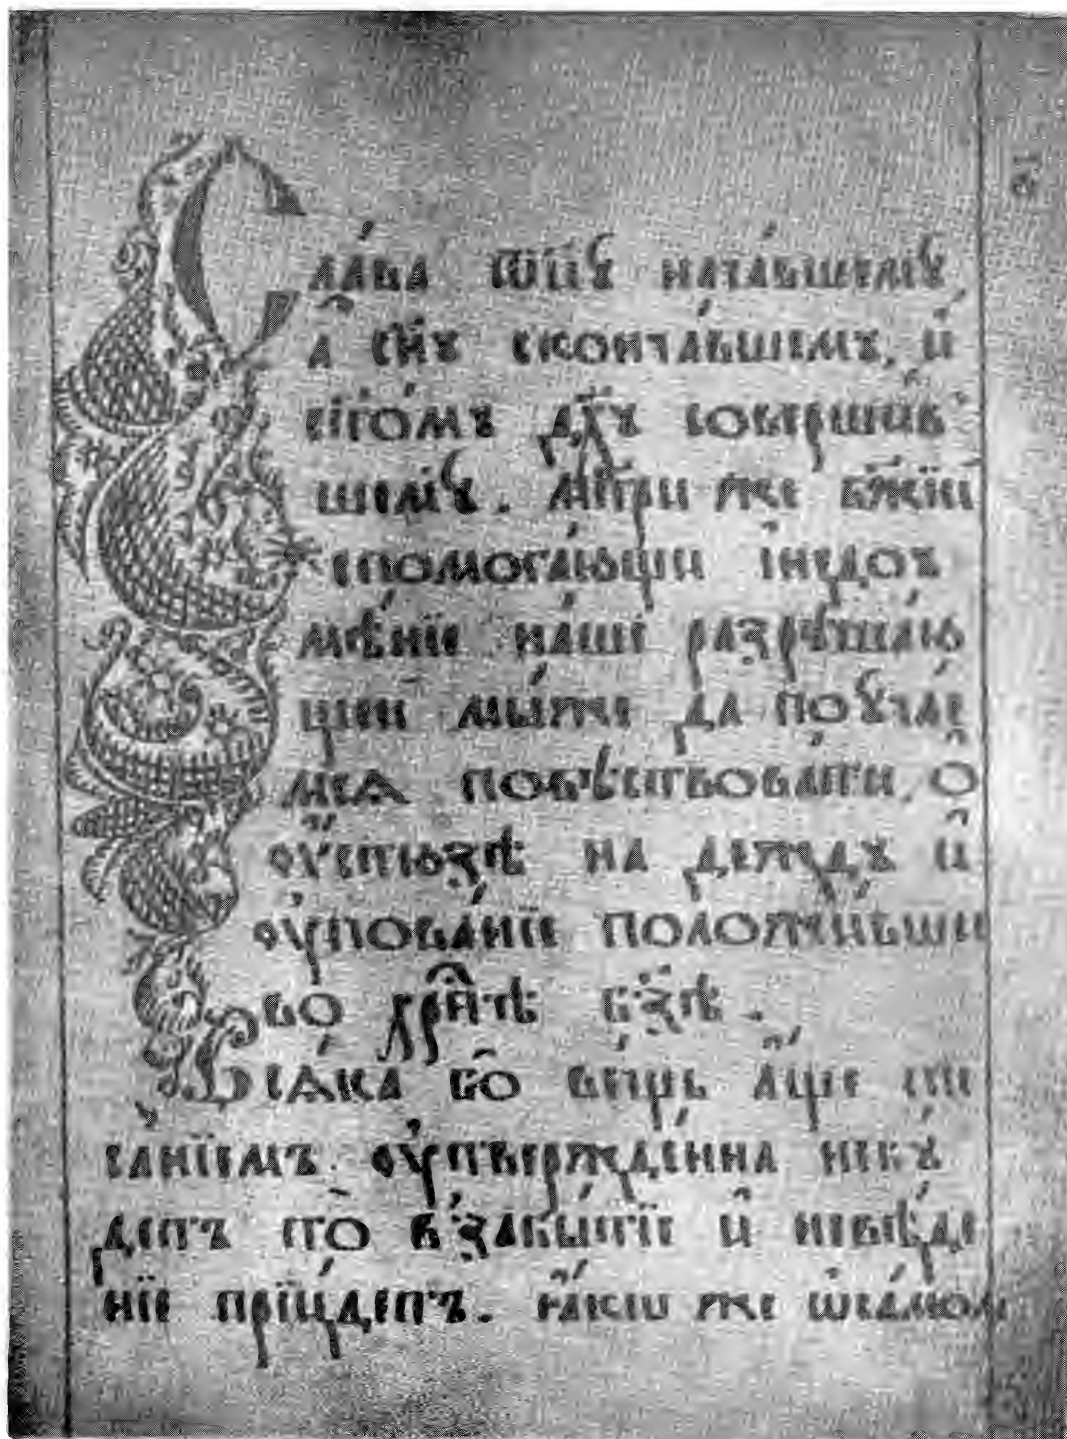 Сла́ва ѿцꙋ̀ нача́вшемꙋ̀,
а сн҃ꙋ сконча́вшемꙋ, и҆
ст҃о́мꙋ дх҃ꙋ соверши́в
шемꙋ̀. мт҃ри же бж҃їи
спомога́ющи и҆недоꙋ
мѣ́нїе на́ше разрѣша́ю
щеи мы́же да поꙋчае
мсѧ повѣствовати, ѻ
ѹ҆стюзѣ надеждꙋ и҆
ѹ҆пова́нїе положе́ньши
во хрⷭ҇тѣ бз҃ѣ.
Всѧ́ка бо̀ ве́щь а҆́ще пи
са́нїемъ ѹ҆тверже́нна не бꙋ́
детъ то̀ в забы́тїе и҆ невѣ́де
нїе прїи́детъ. ꙗ҆́кѡ же ѡ҆ само́м